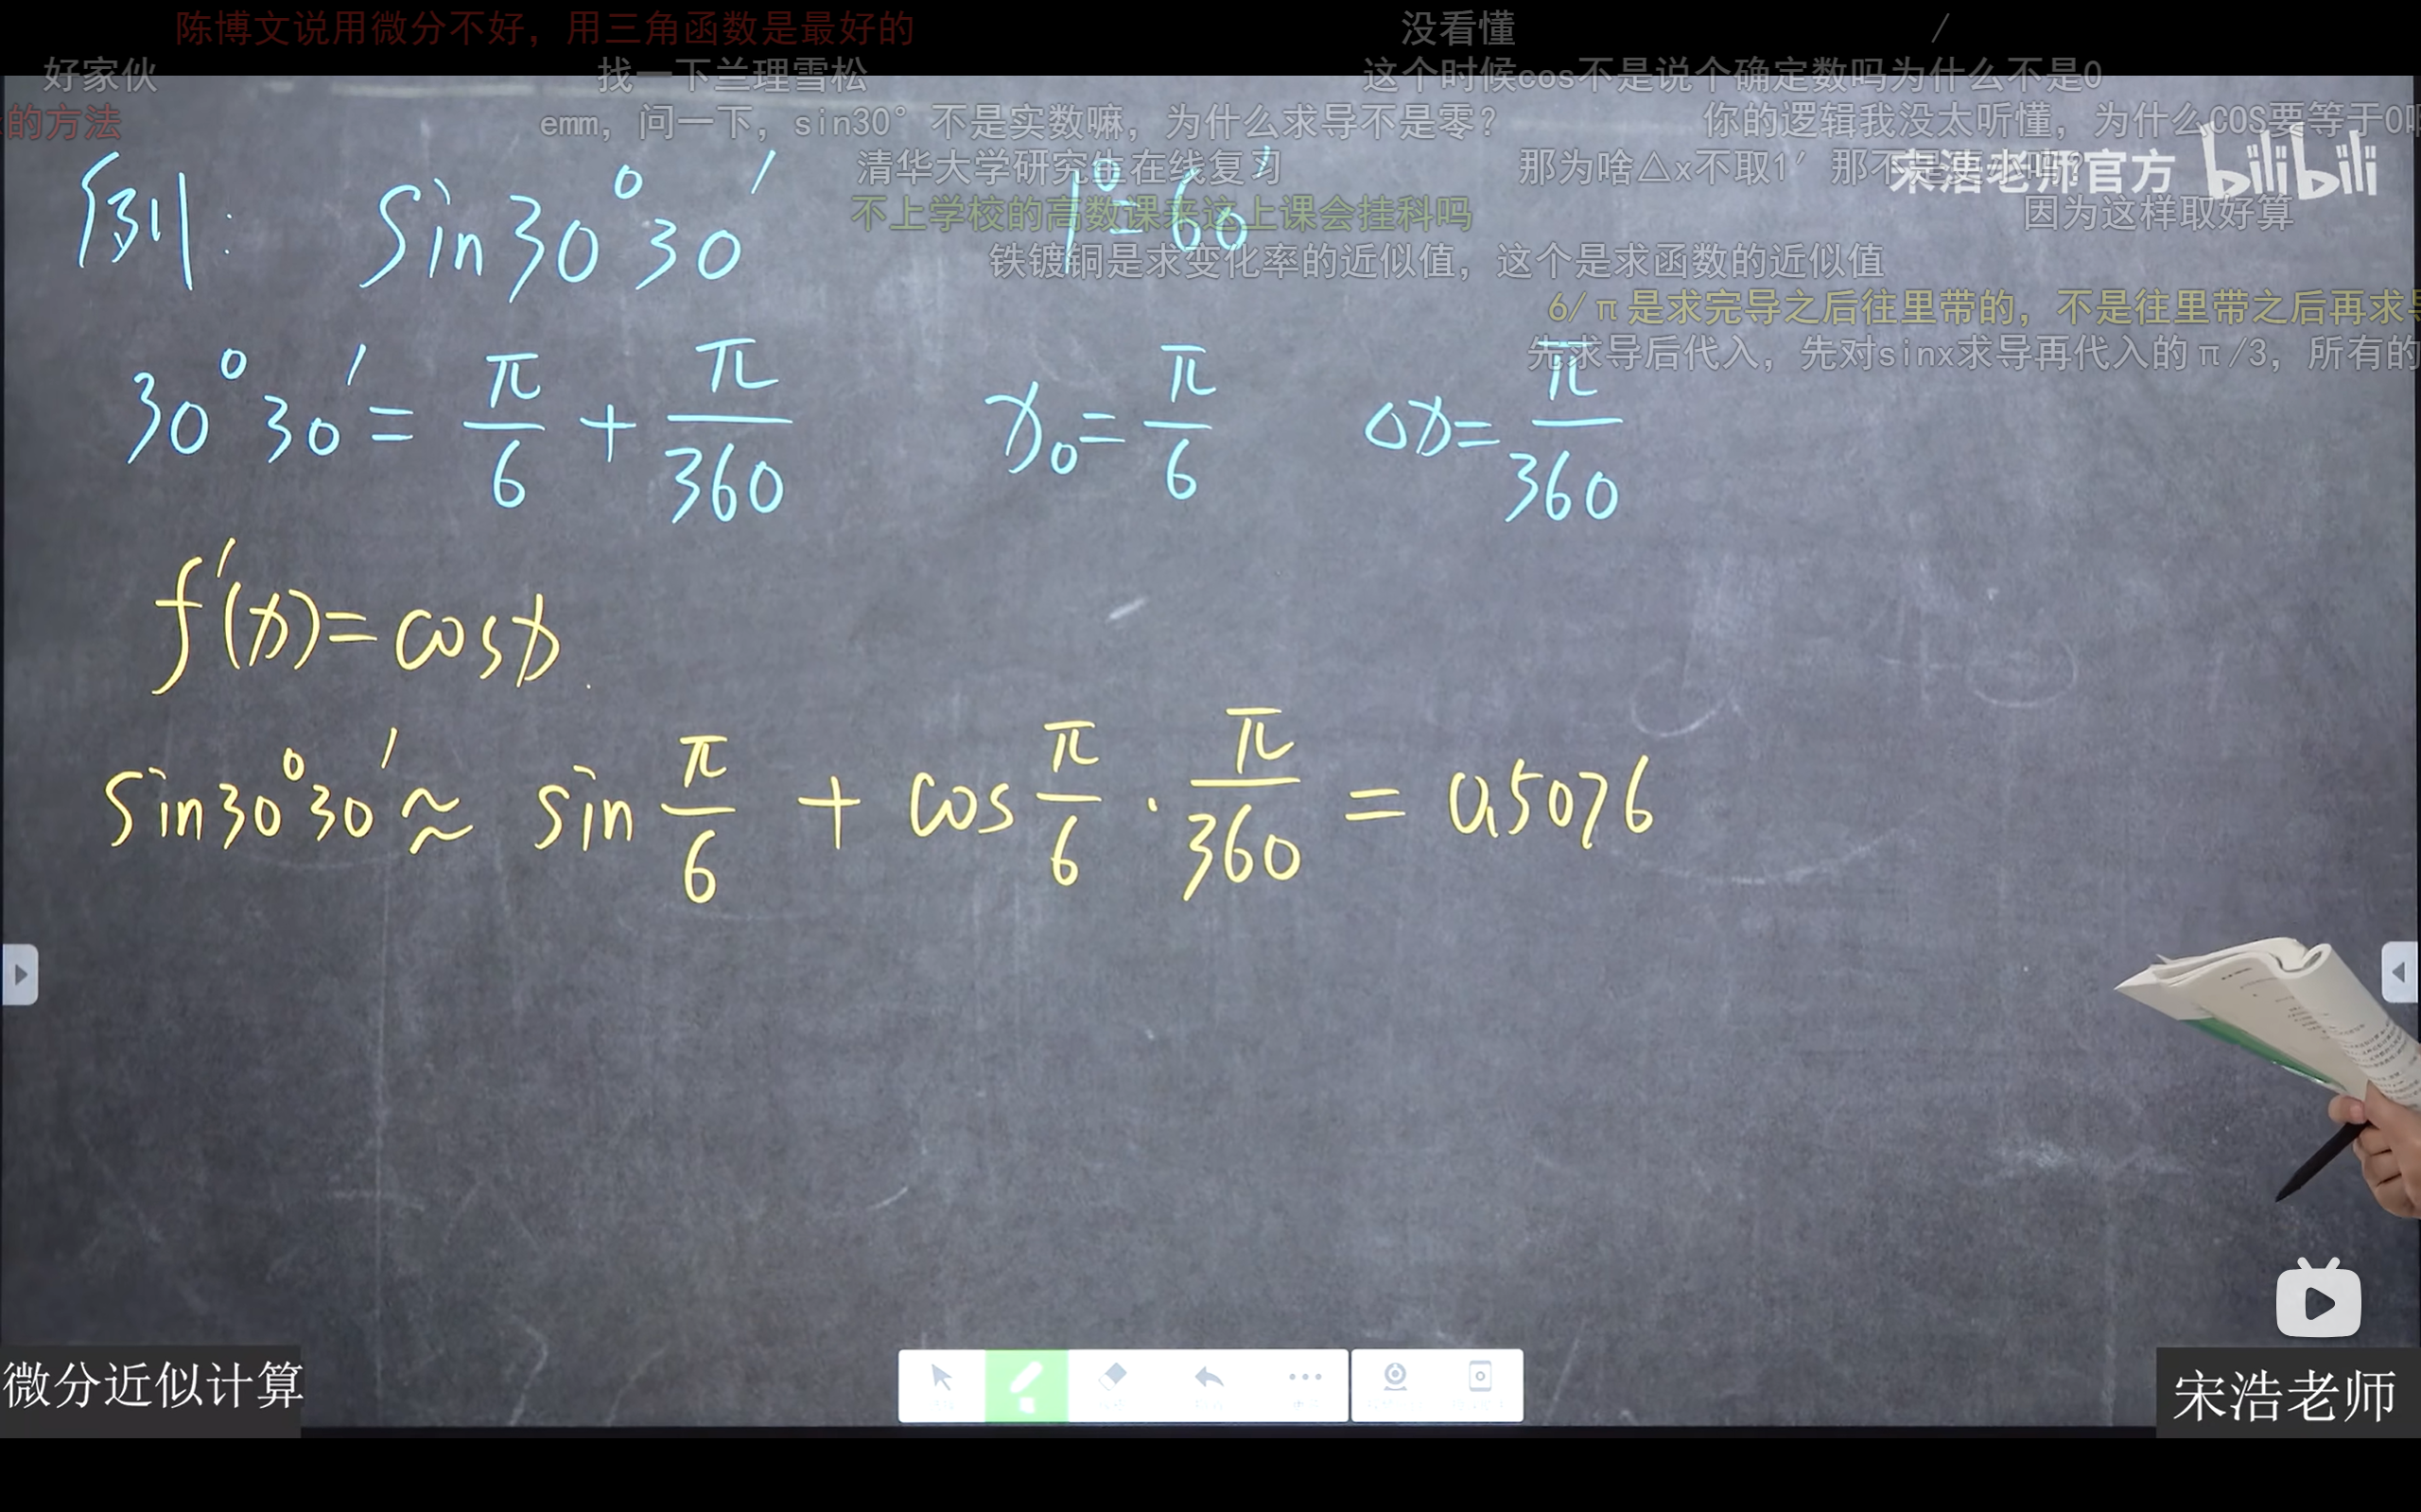 陈博文说用微分不好，用三角函数是最好的
没看懂
/
好家伙
找一下兰理雪松
这个时候cos不是说个确定数吗为什么不是0
的方法
emm，问一下，sin30°不是实数嘛，为什么求导不是零？
你的逻辑我没太听懂，为什么COS要等于0啊
清华大学研究生在线复习
宋浩老师官方 bilibili
不上学校的高数课来这上课会挂科吗
因为这样取好算
例: sin30°30′ 1°=60′
铁镀铜是求变化率的近似值，这个是求函数的近似值
6/π是求完导之后往里带的，不是往里带之后再求导
先求导后代入，先对sinx求导再代入的π/3，所有的
30°30′= π/6 + π/360 x₀= π/6 △x= π/360
f′(x)=cosx.
sin30°30′≈ sin π/6 + cos π/6 · π/360 = 0.5076
微分近似计算
宋浩老师